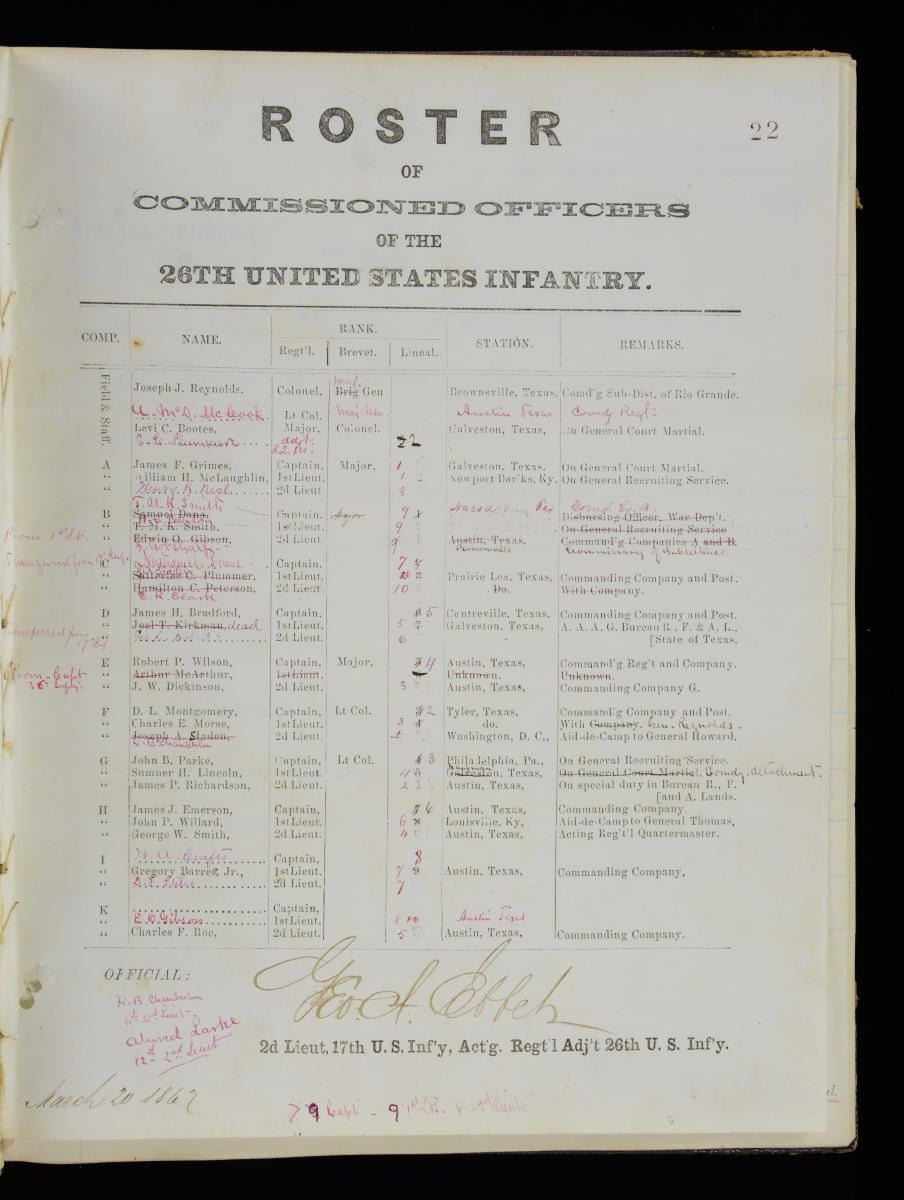 22
ROSTER
OF
COMMISSIONED OFFICERS
OF THE
26TH UNITED STATES INFANTRY.
COMP. NAME. RANK. STATION. REMARKS.
Regt'l. Brevet. Lineal.
Field & Staff.
Maj.
Joseph J. Reynolds. Colonel, Brig Gen Brownsville, Texas, Comd'g Sub-Dist. of Rio Grande.
A. McD. McCook Lt Col. Maj. Gen. Austin Texas Comdg Regt.
Levi C. Bootes, Major, Colonel. Galveston, Texas, On General Court Martial.
S. C. Plummer Adjt. 2
R.Q.M.
A James F. Grimes, Captain, Major, 1 Galveston, Texas. On General Court Martial.
" William H. McLaughlin, 1st Lieut. 1 Newport Bar'ks, Ky, On General Recruiting Service.
" Henry K. 2d Lieut 8
T. M. K. Smith
B Samuel Dana, Captain, Major 9 Comdg Co. B.
Disbursing Officer, War Dep't.
H. C. Peterson
" T. M. K. Smith, 1st Lieut. 9 On General Recruiting Service
" Edwin O. Gibson, 2d Lieut. 9 Austin, Texas, Command'g Companies A and B.
Prom 1st Lt. Commissary of Subsistence
Transferred from 17 Infy.
C Nathaniel Prime Captain, 7
" Satterlee C. Plummer, 1st Lieut. Prairie Lea, Texas, Commanding Company and Post.
" Hamilton C. Peterson, 2d Lieut. 10 Do. With Company.
E. R. Clark
D James H. Bradford, Captain. 5 Centreville, Texas, Commanding Company and Post.
" Joel T. Kirkman, dead 1st Lieut. 5 Galveston, Texas, A. A. A. G. Bureau R, F. & A. L.,
Transferred from 17 Inf " 2d Lieut. 6 [State of Texas,
E Robert P. Wilson, Captain, Major, 4 Austin, Texas, Command'g Reg't and Company.
Prom Capt 36 Infty. " Arthur McArthur, 1st Lieut. Unknown. Unknown.
" J. W. Dickinson, 2d Lieut. 3 Austin, Texas, Commanding Company G.
F D. L. Montgomery, Captain, Lt Col. 2 Tyler, Texas, Command'g Company and Post.
" Charles E. Morse, 1st Lieut. 3 do. With Company. Gen. Reynolds.
" Joseph A. Sladen, 2d Lieut. Washington, D. C., Aid-de-Camp to General Howard.
H. B. Chamberlin
G John B. Parke, Captain, Lt Col. 3 Philadelphia, Pa., On General Recruiting Service.
" Sumner H. Lincoln, 1st Lieut. 4 Galveston, Texas, On General Court Martial. Comdg. detachment.
" James P. Richardson, 2d Lieut. 2 Austin, Texas, On special duty in Bureau R., F.
[and A. Lands.
H James J. Emerson, Captain, 6 Austin, Texas, Commanding Company.
" John P. Willard, 1st Lieut. 6 Louisville, Ky, Aid-de-Camp to General Thomas,
" George W. Smith, 2d Lieut. 4 Austin, Texas, Acting Reg't'l Quartermaster.
I W. A. Crafts Captain, 8
" Gregory Barrett Jr., 1st Lieut. 7 Austin, Texas, Commanding Company,
" 2d Lieut. 7
K Captain,
" E. O. Gibson 1st Lieut. 8 Austin Texas
" Charles F. Roe, 2d Lieut. 5 Austin, Texas, Commanding Company.
OFFICIAL:
Geo. A. Ebbets
H. B. Chamberlin
11th 2nd Lieut
Alured Larke
12th 2nd Lieut
2d Lieut, 17th U. S. Inf'y, Act'g. Regt'l Adj't 26th U. S. Inf'y.
March 20 1867
9 Capt - 9 1st Lts. 8 2nd Lieuts